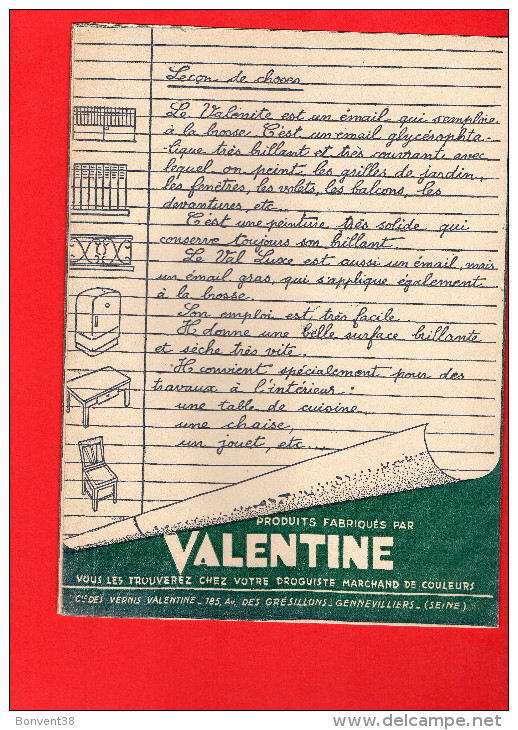 Leçon de choses
Le Valénite est un émail qui s'emploie
à la brosse. C'est un émail glycérophta-
lique très brillant et très couvrant avec
lequel on peint les grilles de jardin,
les fenêtres, les volets, les balcons, les
devantures, etc...
C'est une peinture très solide qui
conserve toujours son brillant.
Le Val Luxe est aussi un émail, mais
un émail gras, qui s'applique également
à la brosse.
Son emploi est très facile.
Il donne une belle surface brillante
et sèche très vite.
Il convient spécialement pour des
travaux à l'intérieur :
une table de cuisine,
une chaise,
un jouet, etc...
PRODUITS FABRIQUÉS PAR
VALENTINE
VOUS LES TROUVEREZ CHEZ VOTRE DROGUISTE MARCHAND DE COULEURS
Cie DES VERNIS VALENTINE _ 185, Av. DES GRÉSILLONS _ GENNEVILLIERS _ (SEINE)
Bonvent38
delcampe.net